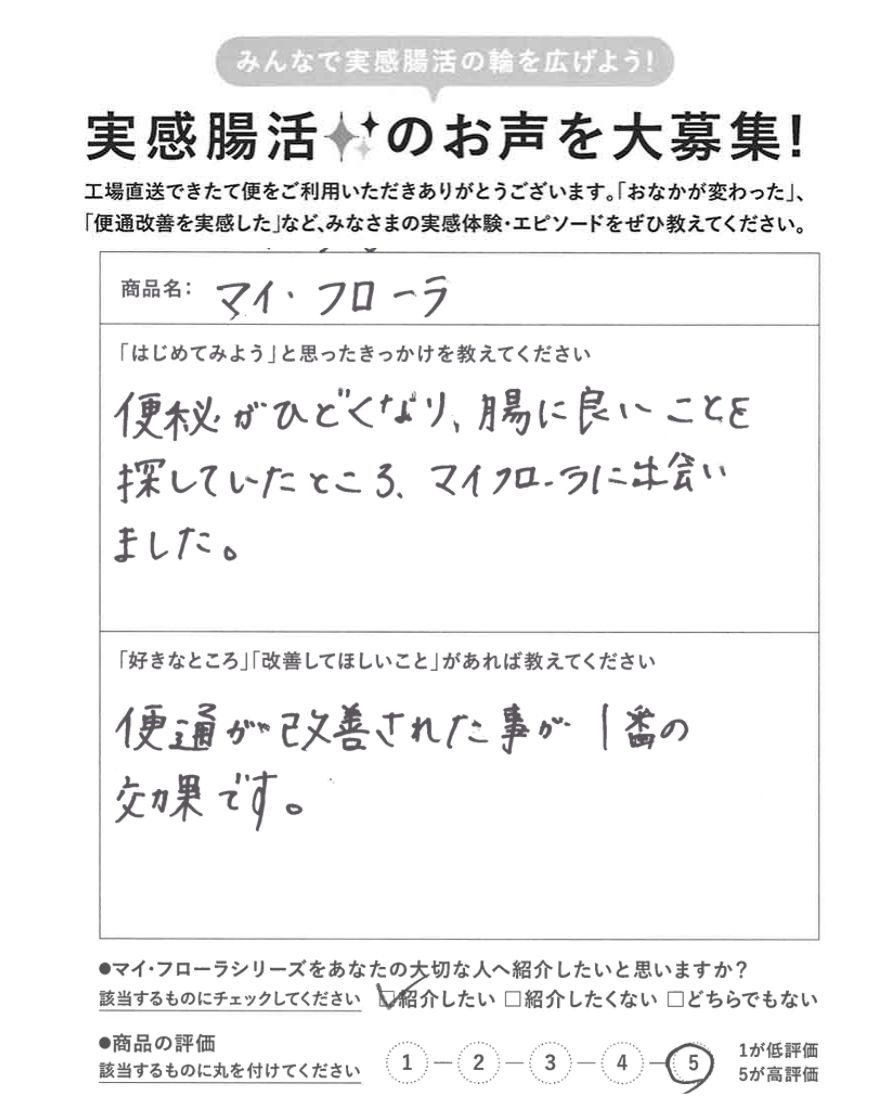 みんなで実感腸活の輪を広げよう!
実感腸活のお声を大募集!
工場直送できたて便をご利用いただきありがとうございます。「おなかが変わった」、
「便通改善を実感した」など、みなさまの実感体験・エピソードをぜひ教えてください。
商品名: マイ・フローラ
「はじめてみよう」と思ったきっかけを教えてください
便秘がひどくなり、腸に良いことを
探していたところ、マイフローラに出会い
ました。
「好きなところ」「改善してほしいこと」があれば教えてください
便通が改善された事が1番の
効果です。
●マイ・フローラシリーズをあなたの大切な人へ紹介したいと思いますか?
該当するものにチェックしてください ☑紹介したい □紹介したくない □どちらでもない
●商品の評価
該当するものに丸を付けてください
1 — 2 — 3 — 4 — 5
1が低評価
5が高評価